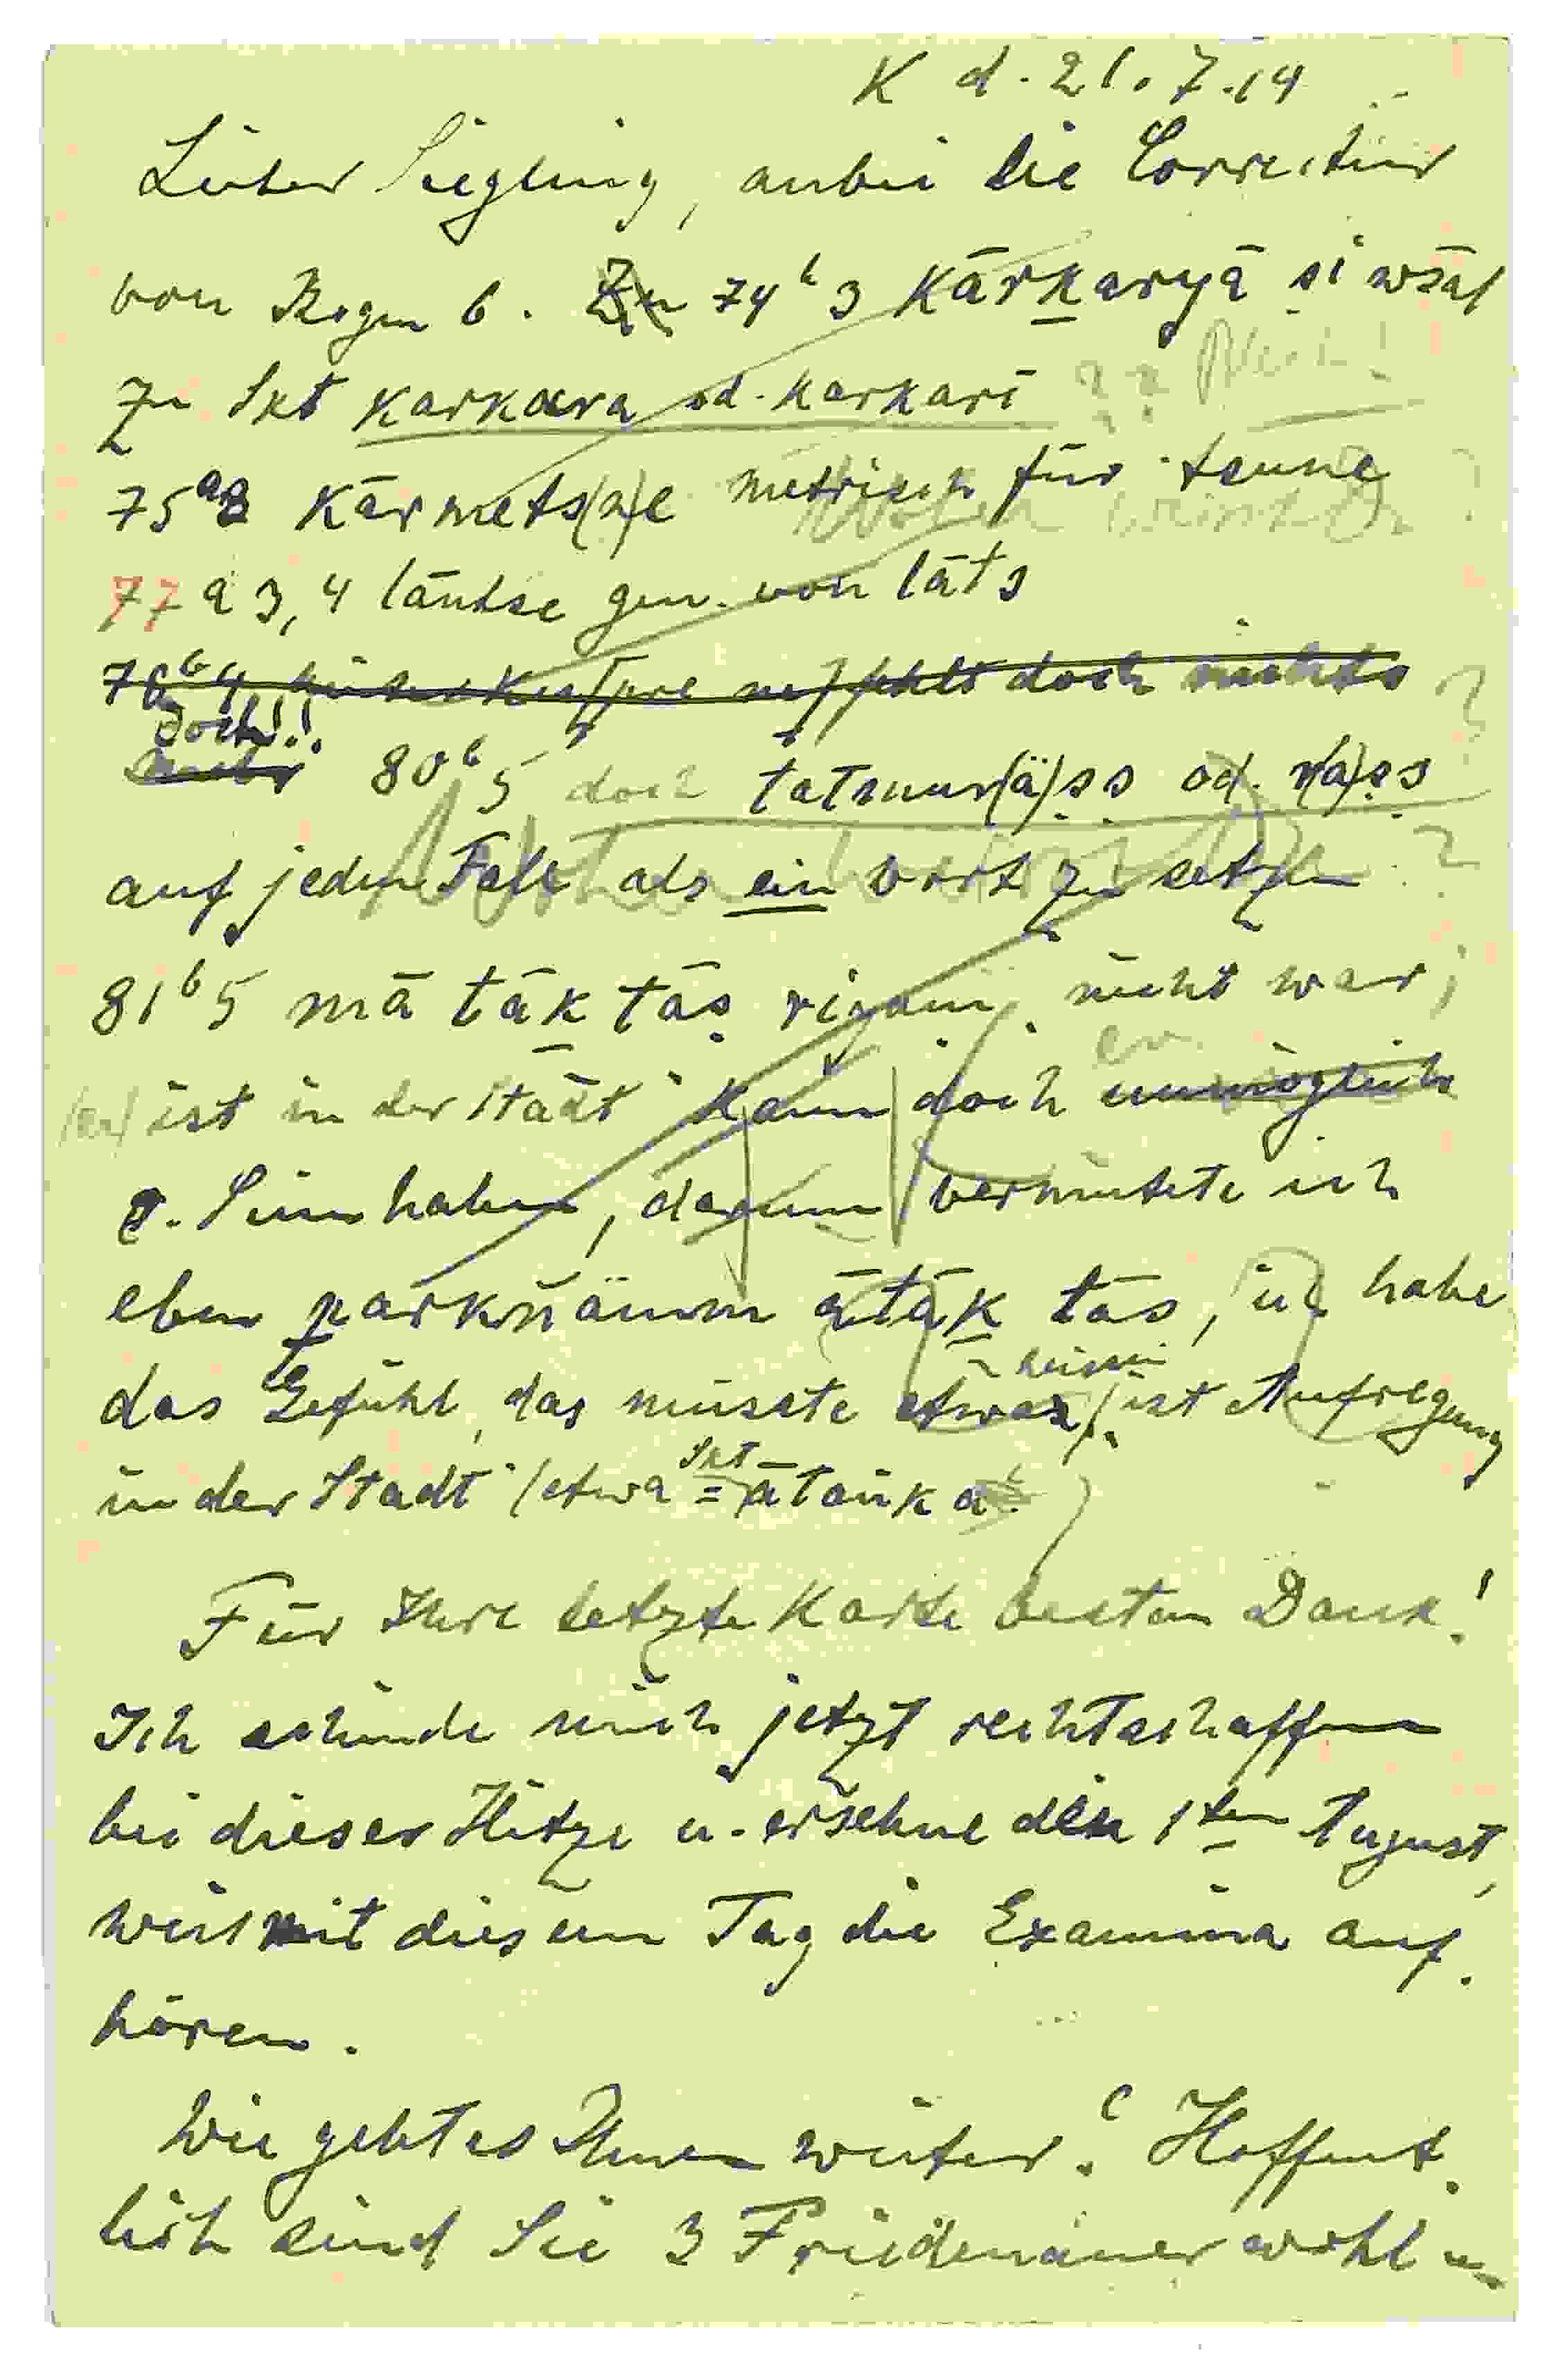 K d. 21.7.14
Lieber Siegling, anbei die Correctur
von Bogen 6. 74 b 3 kārkaryā
zu Skt karkara od. karkarī ?? Nein!
75 a3 kārmets(n)e metrisch für
77 a 3,4 läntse gen. von läts
78 b 4 fehlt doch nichts
doch!!
80 b 5 doch tatmur(ä)ṣṣ od. r(a)ṣṣ
auf jeden Fall als ein Wort zu setzen
81 b 5 mā tāk tāṣ riṣ nicht war;
(er) ist in der Stadt kann doch unmöglich ev.
e. Sinn haben, darum vermutete ich
eben parkñäum ātāk tāṣ, ich habe
das Gefühl, das müsste etwas heissen ist Aufregung
in der Stadt (etwa = Skt ātaṅka
Für Ihre letzte Karte besten Dank!
Ich schinde mich jetzt rechtschaffen
bei dieser Hitze u. ersehne den 1ten August,
weil mit diesem Tag die Examina auf-
hören.
Wie geht es Ihnen weiter? Hoffent-
lich sind Sie 3 Friedenauer wohl u.